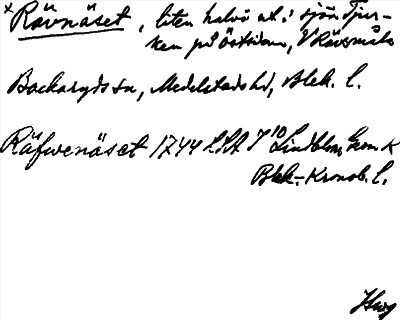 x Rävnäset, liten halvö ut i sjön Tjur-
ken på östsidan, V Rävsmåla
Backaryds sn, Medelstads hd, Blek. l.
Räfwenäset 1744 LSA I 10 Lindblom, Grm. K
Blek.-Kronob. l.